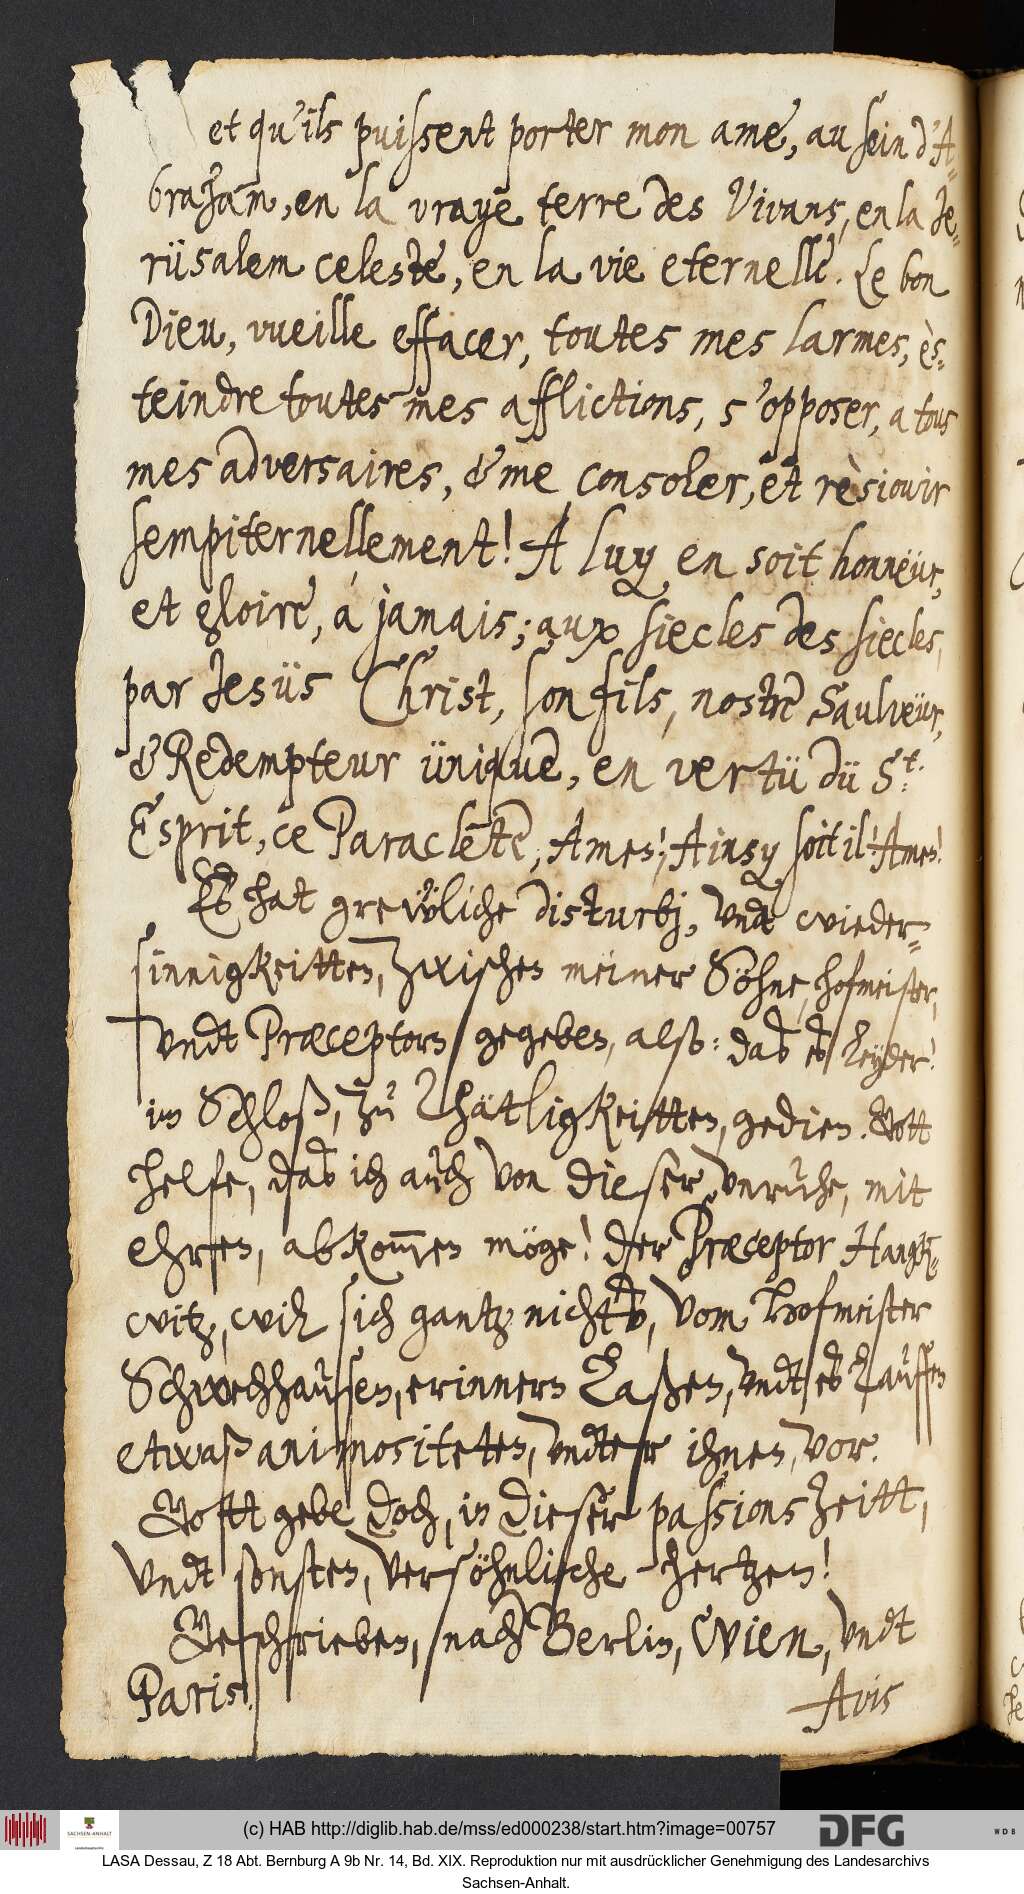 et qu'ils puissent porter mon ame, au sein d'A-
braham, en la vraye terre des Vivans, en la Je-
rüsalem celeste, en la vie eternelle. Le bon
Dieu, vueille effacer, toutes mes larmes, ès-
teindre toutes mes afflictions, s'opposer, a tous
mes adversaires, & me consoler, et rèsiouir
sempiternellement! A luy en soit honneür,
et gloire, a jamais; aux siecles des siecles,
par Jesüs Christ, son fils, nostre Saulveür,
& Redempteur ünique, en vertü dü St:
Esprit, ce Paraclete, Amen! Ainsy soit il! Amen!
Es hat grewliche disturbj, undt wieder-
sinnigkeitten, zwischen meiner Söhne, hofmeister,
undt Præceptorn gegeben, also: daß es leyder!
im Schloß, zu Thätligkeitten, gedien. Gott
helfe, daß ich auch von dieser unruhe, mit
ehren, abkommen möge! der Præceptor Haugk-
witz, will sich gantz nichts, vom Hofmeister
Schwechhausen, erinnern laßen, undt es lauffen
etwaß animositeten, undter ihnen, vor.
Gott gebe doch, in dieser passions zeitt,
undt sonsten, versöhnliche hertzen!
Geschrieben, nach Berlin, Wien, undt
Paris.
Avis
(c) HAB http://diglib.hab.de/mss/ed000238/start.htm?image=00757
DFG
WDB
SACHSEN-ANHALT
LASA Dessau, Z 18 Abt. Bernburg A 9b Nr. 14, Bd. XIX. Reproduktion nur mit ausdrücklicher Genehmigung des Landesarchivs
Sachsen-Anhalt.